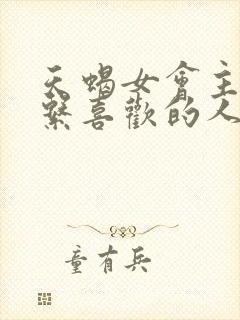 天蝎女會主
繫喜歡的人
童有兵